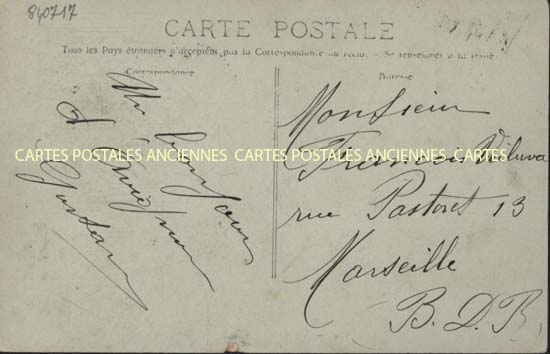 840717
CARTE POSTALE
Tous les Pays étrangers n'acceptent pas la Correspondance au recto. - Se renseigner à la Poste
Correspondance
Adresse
Un bonjour
d'Avignon
Gustave
Monsieur
Francois
rue Pastoret 13
Marseille
B. D. R.
CARTES POSTALES ANCIENNES CARTES POSTALES ANCIENNES